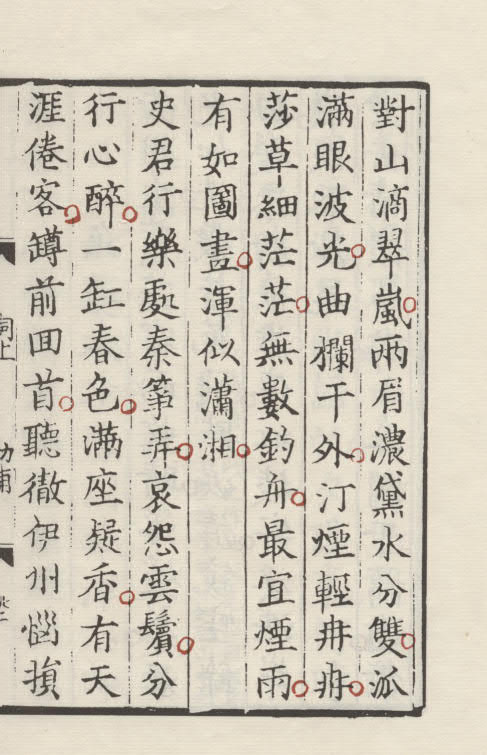 對山滴翠嵐兩眉濃黛水分雙泒
滿眼波光曲欄干外汀煙輕冉冉
莎草細茫茫無數釣舟最宜煙雨
有如圖畫渾似瀟湘
史君行樂處秦箏弄哀怨雲鬢分
行心醉一缸春色滿座疑香有天
涯倦客罇前回首聽徹伊州惱損